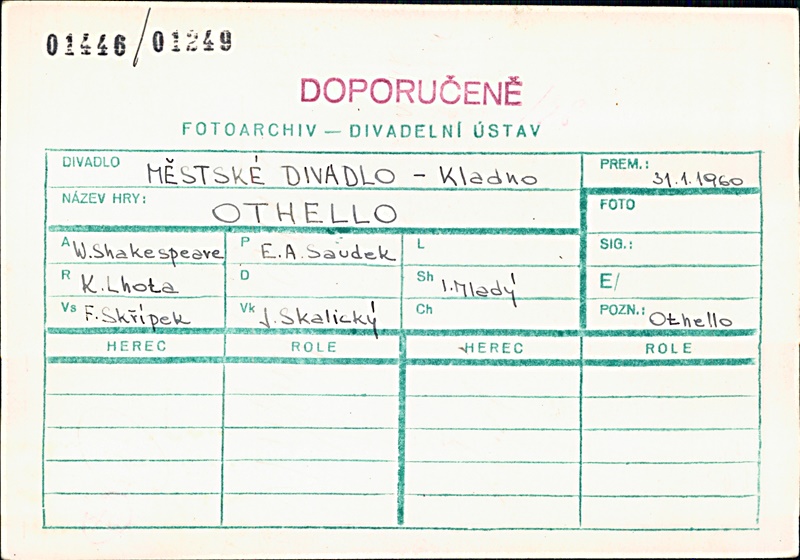 01446/01249
DOPORUČENĚ
FOTOARCHIV — DIVADELNÍ ÚSTAV
DIVADLO MĚSTSKÉ DIVADLO - Kladno PREM.: 31.1.1960
NÁZEV HRY: OTHELLO FOTO
A W.Shakespeare P E.A.Saudek L SIG.:
R K.Lhota D Sh I.Mladý E/
Vs F.Skřípek Vk J.Skalický Ch POZN.: Othello
HEREC ROLE HEREC ROLE